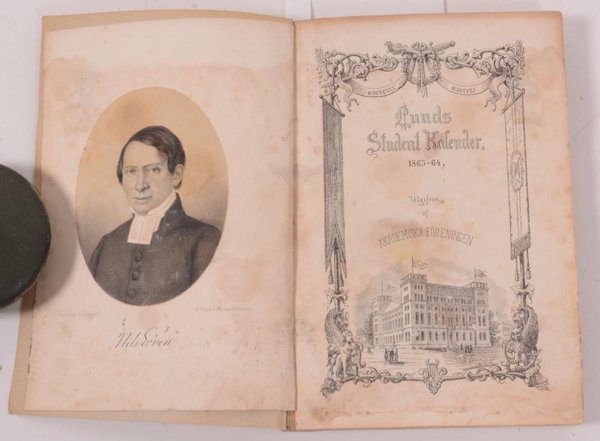 Nils Lovén
MDCCCXLII
MDCCCLI
Lunds
Student Kalender,
1863-64,
Utgifven
af
AKADEMISKA FÖRENINGEN